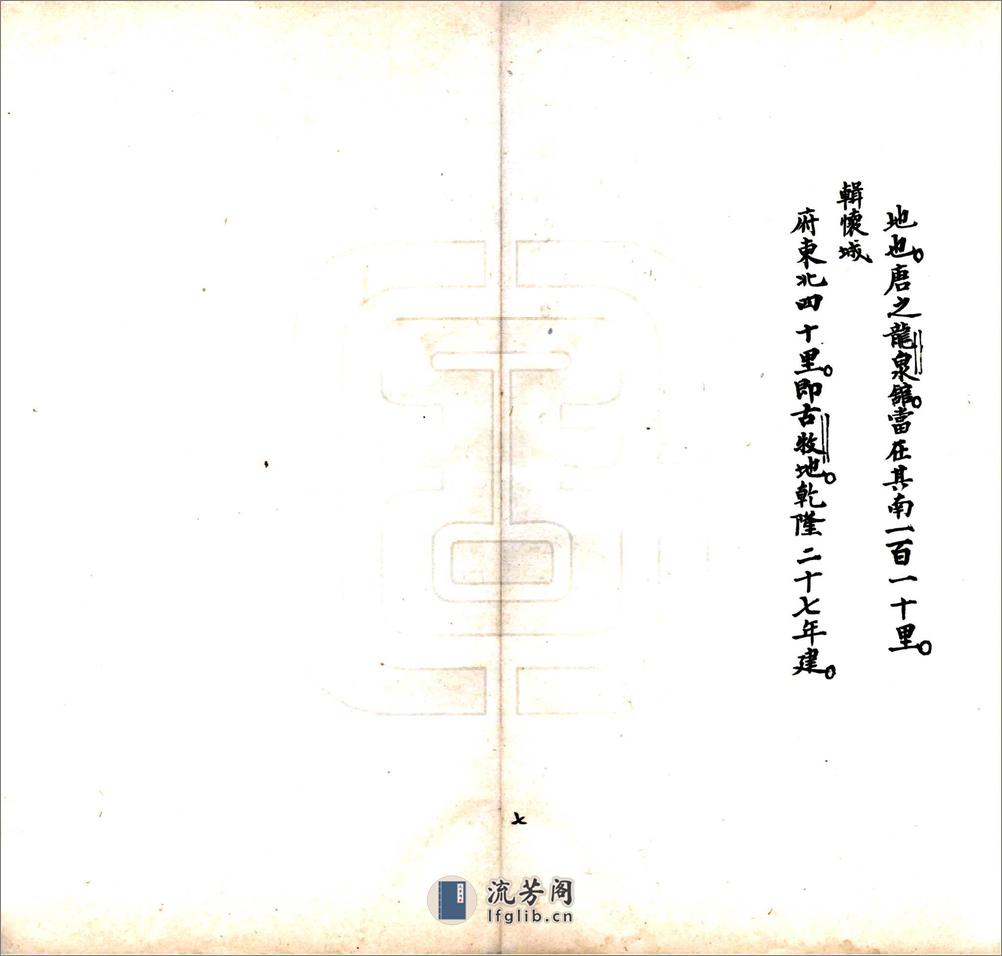 地也。唐之龍泉館。當在其南一百一十里。
輯懷城
府東北四十里。即古牧地。乾隆二十七年建。
七
流芳阁
lfglib.cn